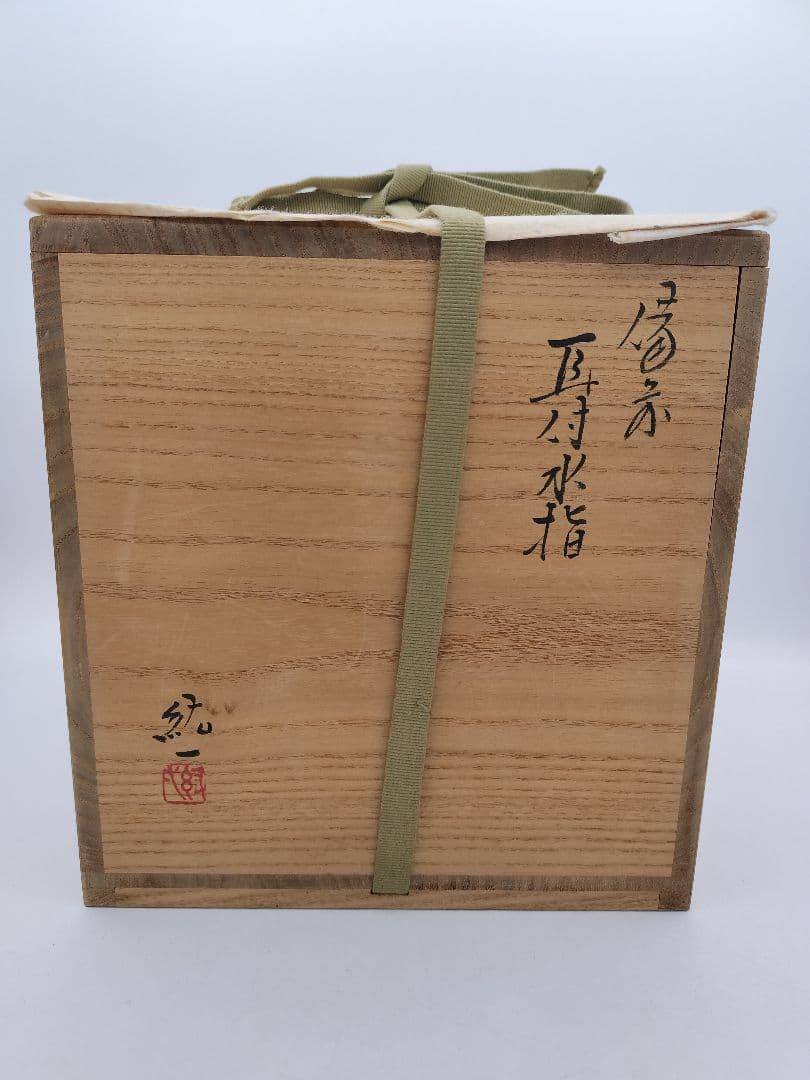 備前
耳付水指
紀一